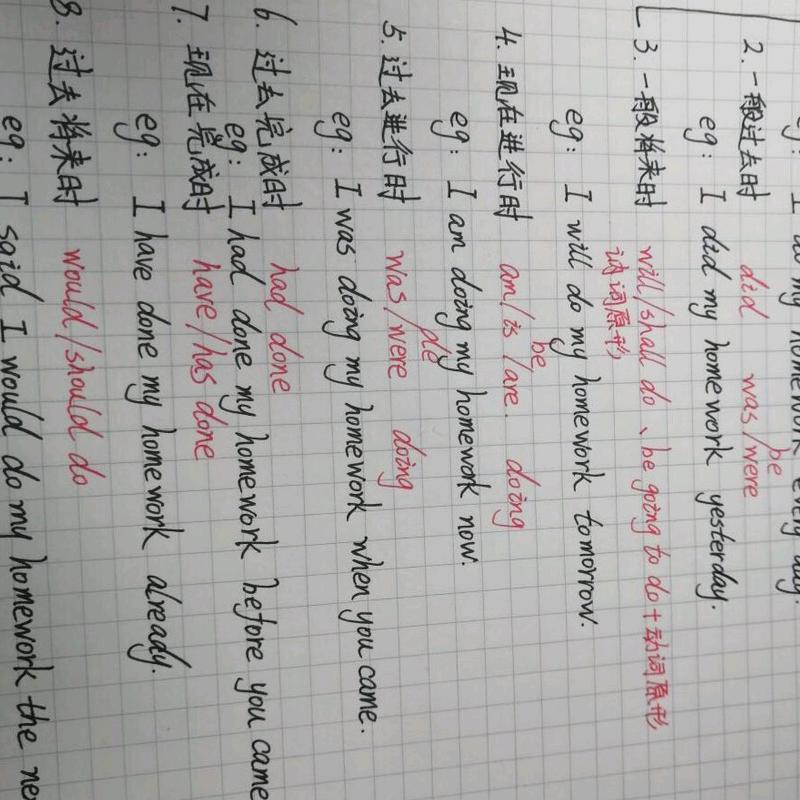 I do my homework every day.
2. 一般过去时 did was/were be
eg: I did my homework yesterday.
3. 一般将来时 will/shall do、be going to do + 动词原形
动词原形
eg: I will do my homework tomorrow.
4. 现在进行时 am/is/are. be doing
eg: I am doing my homework now.
5. 过去进行时 was/were doing
eg: I was doing my homework when you came.
6. 过去完成时 had done
eg: I had done my homework before you came
7. 现在完成时 have/has done
eg: I have done my homework already.
8. 过去将来时 would/should do
eg: I said I would do my homework the ne